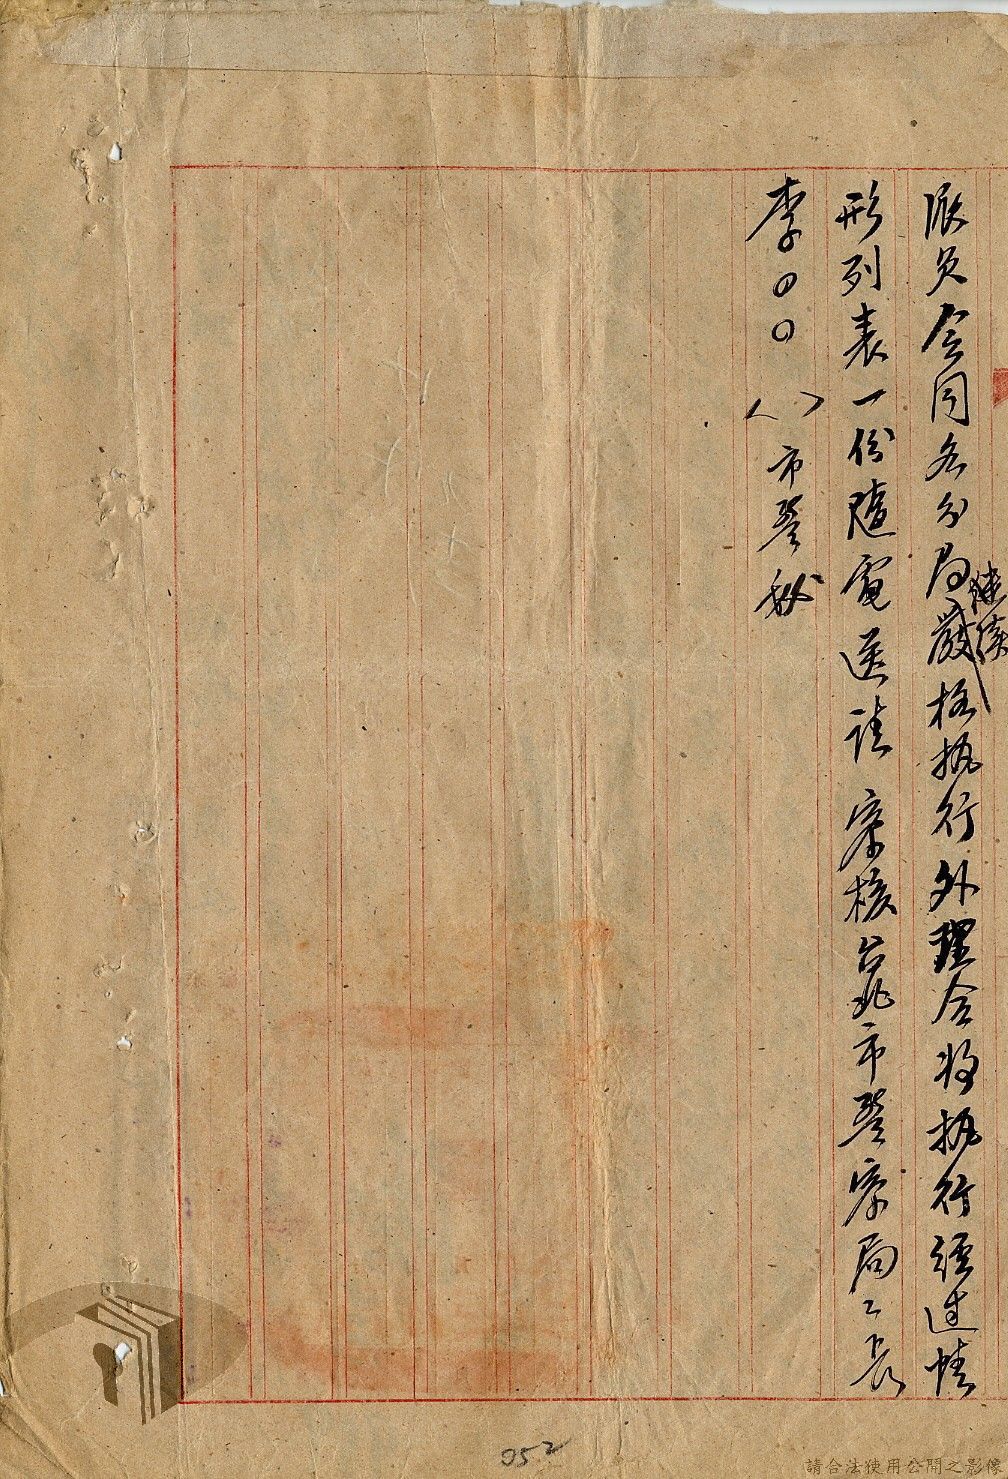 派員会同各分局嚴格执行外理合将执行經过情
继续
形列表一份隨電送請 察核台北市警察局々長
李〇〇 ( ) 市警秘
052
請合法使用公開之影像